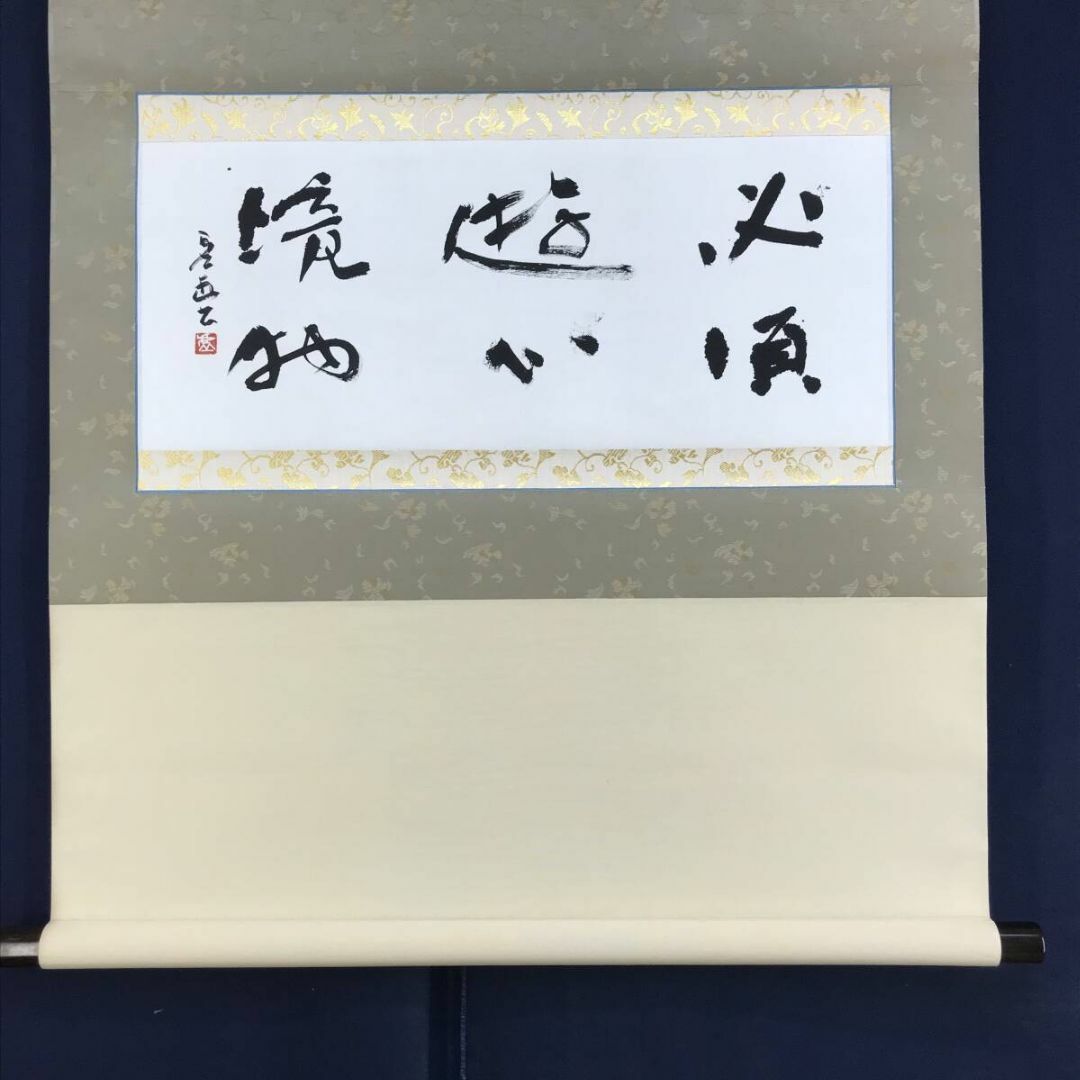 必須
遊心
境物